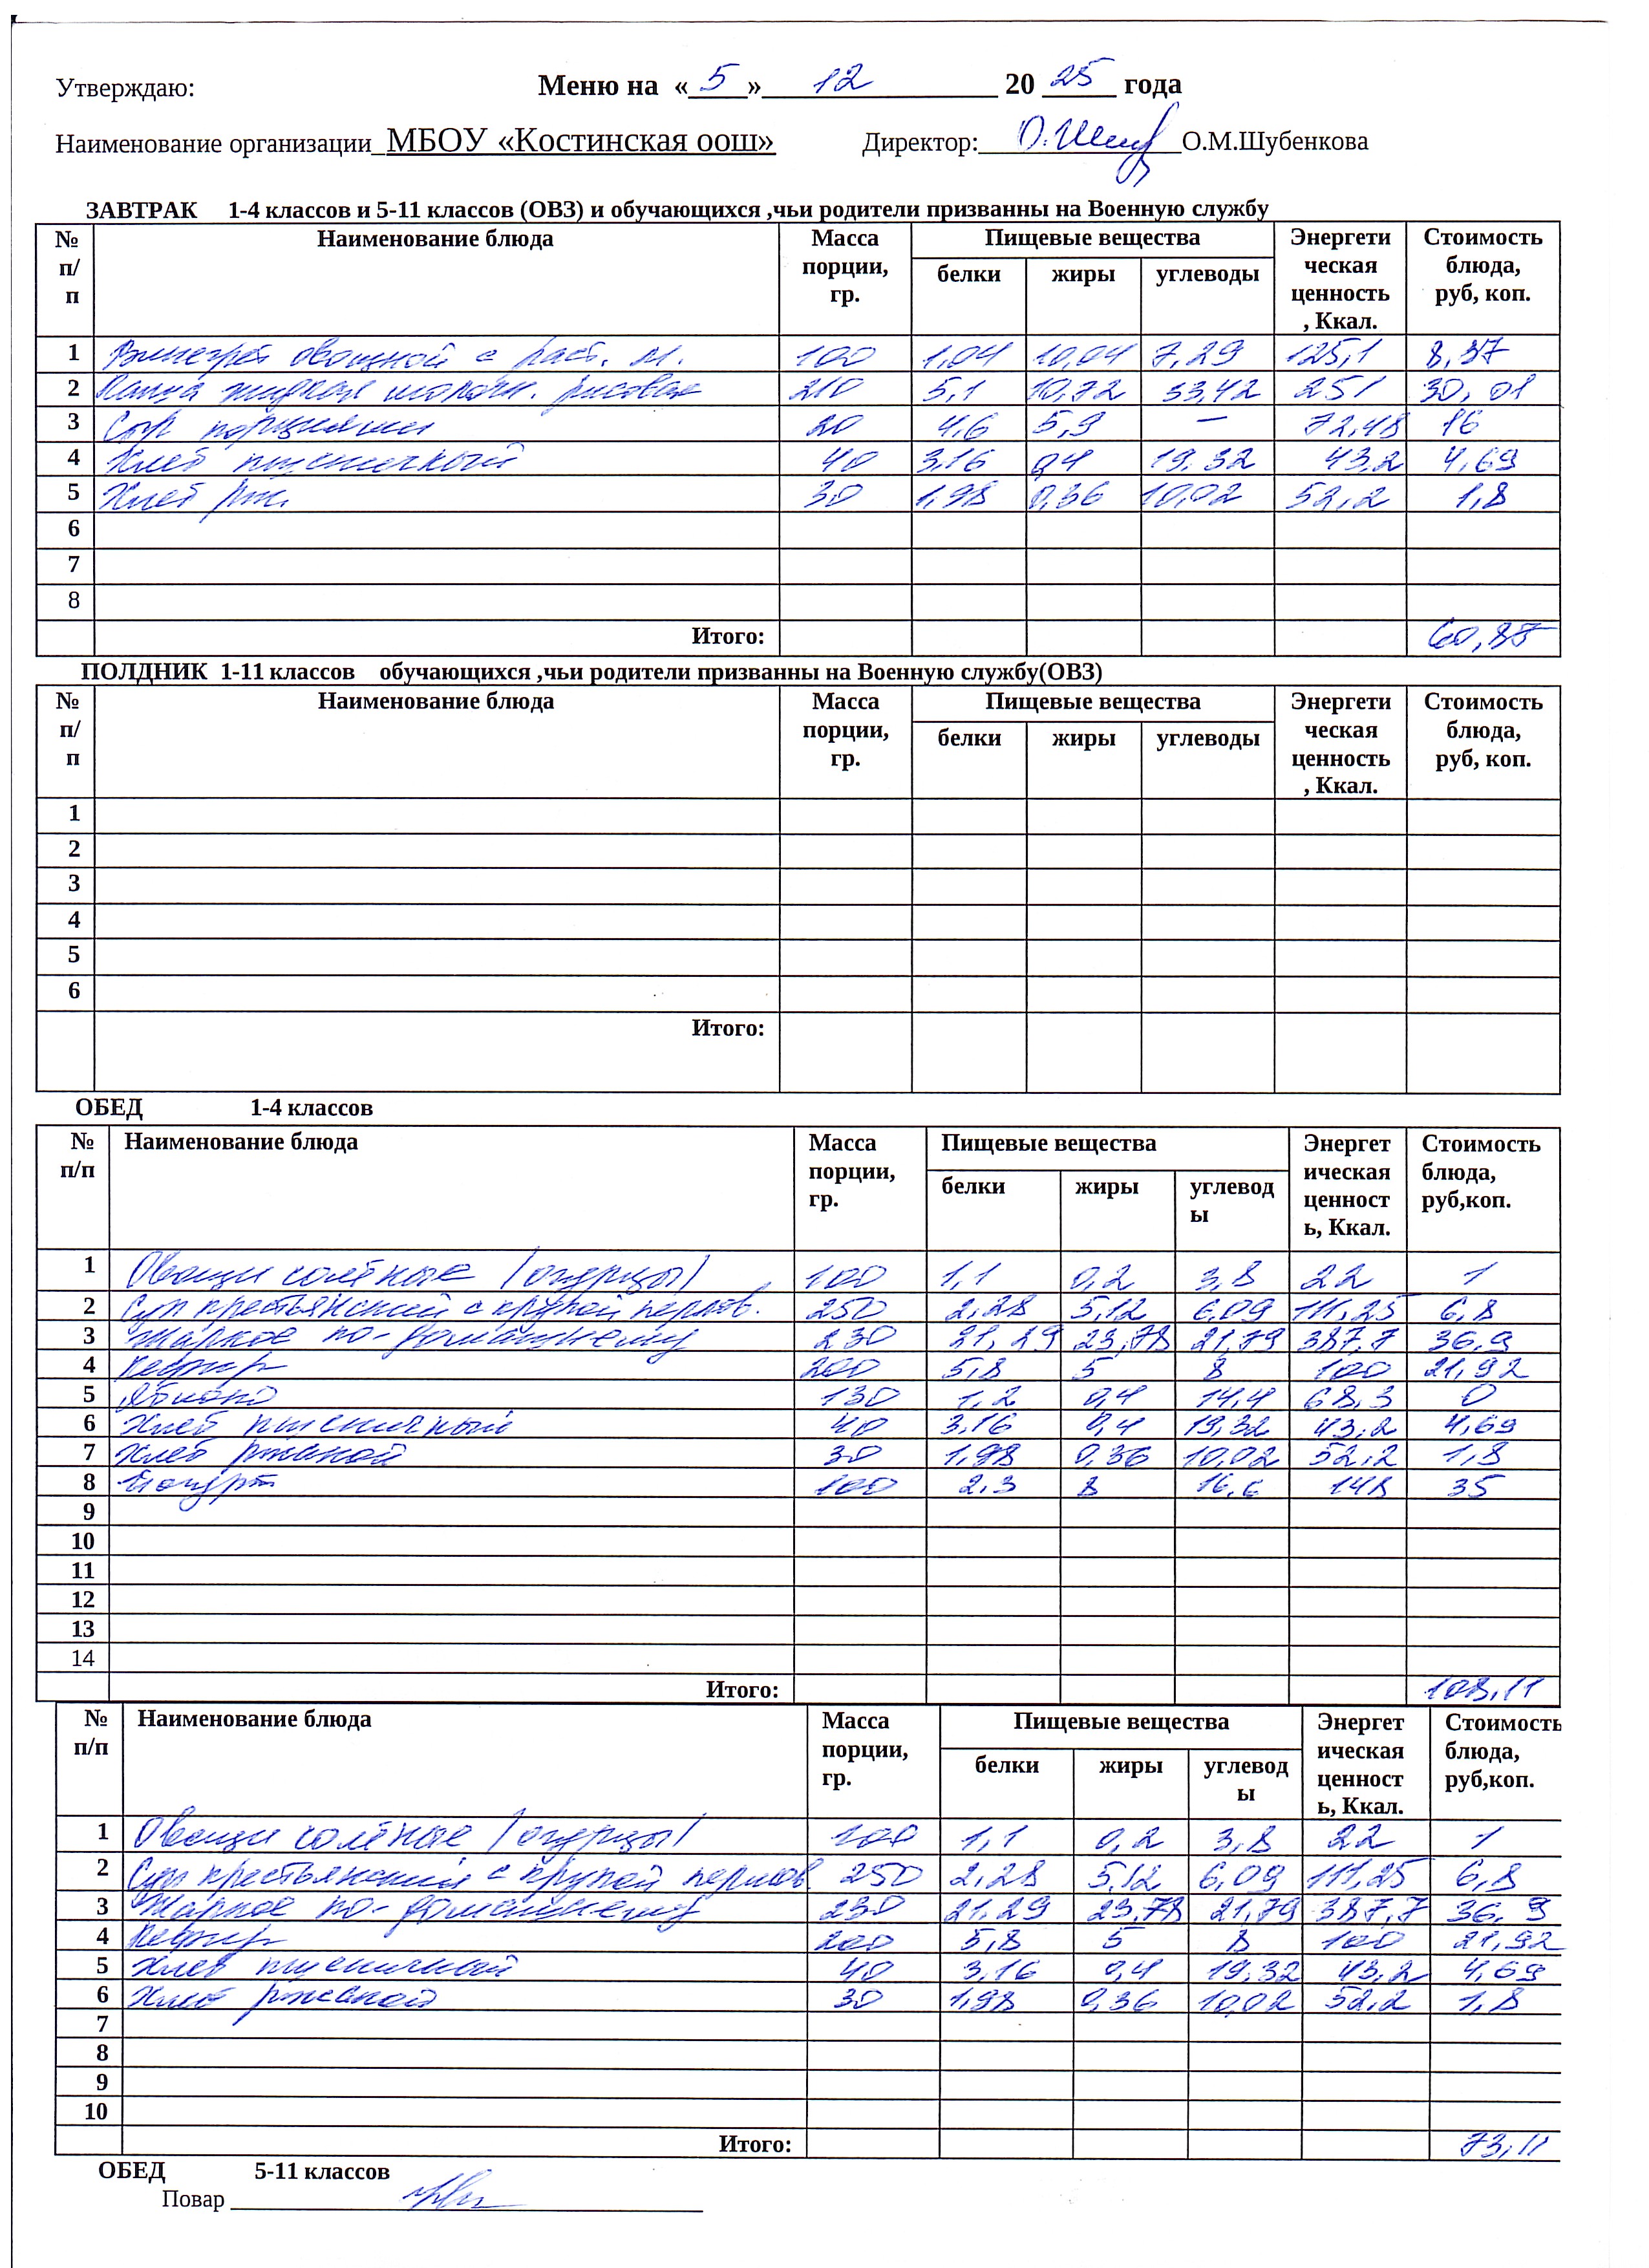 Утверждаю: Меню на «5» 12 20 25 года
Наименование организации_МБОУ «Костинская оош» Директор: О.М.Шубенкова
ЗАВТРАК 1-4 классов и 5-11 классов (ОВЗ) и обучающихся ,чьи родители призванны на Военную службу
№ п/п Наименование блюда Масса порции, гр. Пищевые вещества Энергетическая ценность, Ккал. Стоимость блюда, руб, коп.
белки жиры углеводы
1 Винегрет овощной с раст. м. 100 1,04 10,04 7,29 125,1 8,37
2 Каша жидкая молочн. рисовая 210 5,1 10,72 33,42 251 30,01
3 Сыр порциями 20 4,6 5,9 – 72,48 16
4 Хлеб пшеничный 40 3,16 0,4 19,32 43,2 4,69
5 Хлеб рж. 30 1,98 0,36 10,02 52,2 1,8
6
7
8
Итого: 60,87
ПОЛДНИК 1-11 классов обучающихся ,чьи родители призванны на Военную службу(ОВЗ)
№ п/п Наименование блюда Масса порции, гр. Пищевые вещества Энергетическая ценность, Ккал. Стоимость блюда, руб, коп.
белки жиры углеводы
1
2
3
4
5
6
Итого:
ОБЕД 1-4 классов
№ п/п Наименование блюда Масса порции, гр. Пищевые вещества Энергетическая ценность, Ккал. Стоимость блюда, руб,коп.
белки жиры углеводы
1 Овощи солёные /огурцы/ 100 1,1 0,2 3,8 22 1
2 Суп крестьянский с крупой перлов. 250 2,28 5,12 6,09 111,25 6,8
3 Жаркое по-домашнему 230 21,29 23,78 21,79 387,7 36,9
4 Кефир 200 5,8 5 8 100 21,92
5 Яблоко 130 1,2 0,4 14,4 68,3 0
6 Хлеб пшеничный 40 3,16 0,4 19,32 43,2 4,69
7 Хлеб ржаной 30 1,98 0,36 10,02 52,2 1,8
8 Йогурт 100 2,3 8 16,6 148 35
9
10
11
12
13
14
Итого: 108,11
№ п/п Наименование блюда Масса порции, гр. Пищевые вещества Энергетическая ценность, Ккал. Стоимость блюда, руб,коп.
белки жиры углеводы
1 Овощи солёные /огурцы/ 100 1,1 0,2 3,8 22 1
2 Суп крестьянский с крупой перлов. 250 2,28 5,12 6,09 111,25 6,8
3 Жаркое по-домашнему 230 21,29 23,78 21,79 387,7 36,9
4 Кефир 200 5,8 5 8 100 21,92
5 Хлеб пшеничный 40 3,16 0,4 19,32 43,2 4,69
6 Хлеб ржаной 30 1,98 0,36 10,02 52,2 1,8
7
8
9
10
Итого: 73,11
ОБЕД 5-11 классов
Повар